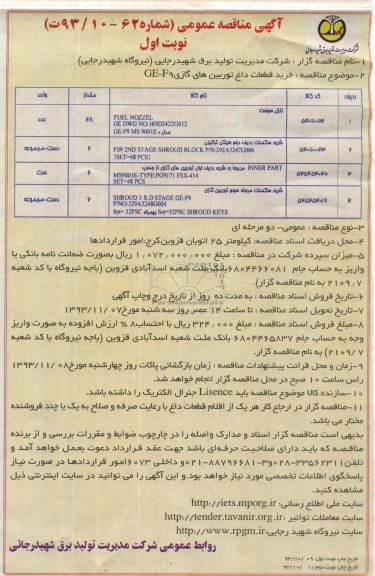 آگهی مناقصه عمومی (شماره ۶۲-۹۳/۱۰ت)
نوبت اول
شرکت مدیریت تولید برق شهیدرجایی
۱-نام مناقصه گزار : شرکت مدیریت تولید برق شهیدرجایی (نیروگاه شهیدرجایی)
۲-موضوع مناقصه : خرید قطعات داغ توربین های گازی GE-F۹
ردیف کد کالا نام کالا مقدار واحد
نازل سوخت
۱ FUEL NOZZEL ۲۸ عدد
GE DWG NO:169E0422G012
GE-F9 MS 9001E مدل
۲ FS9 2ND STAGE SHROUD BLOCK P/N:392A3247G006 ست-مجموعه
[SET=48 PCS]
۳ INNER PART مربوط به شرید ردیف اول توربین های گازی ست
MS9001E-TYPE:PG9171 FSX-414
SET=48 PCS
شرید سگمنت مرحله سوم توربین گازی
۴ SHROUD 3 R.D STAGE GE-F9 ست-مجموعه
P/NO:329A3248G004
Set= 32PSC بهمراه Set=32PSC SHROUD KEYS
۳-نوع مناقصه : عمومی- دو مرحله ای
۴-محل دریافت اسناد مناقصه: کیلومتر ۲۵ اتوبان قزوین کرج،امور قراردادها
۵-میزان سپرده شرکت در مناقصه : مبلغ ۱,۰۷۲,۰۰۰,۰۰۰ ریال بصورت ضمانت نامه بانکی یا
واریز به حساب جام ۶۸۰۴۴۶۶۰۸۱ بانک ملت شعبه اسدآبادی قزوین (باجه نیروگاه با کد شعبه
۲۱۰۹/۷ به نام مناقصه گزار).
۶-تاریخ فروش اسناد مناقصه : به مدت ده روز از تاریخ درج وچاپ آگهی
۷-تاریخ تحویل اسناد مناقصه : تا ساعت ۱۴ عصر روز سه شنبه مورخ ۱۳۹۳/۱۱/۰۷
۸-مبلغ فروش اسناد مناقصه : مبلغ ۳۲۴,۰۰۰ ریال با احتساب ۸% ارزش افزوده به صورت واریز
وجه به حساب جام ۶۸۰۴۴۶۵۸۳۷ بانک ملت شعبه اسدآبادی قزوین (باجه نیروگاه با کد شعبه
۲۱۰۹/۷) به نام مناقصه گزار.
۹-زمان و محل قرائت پیشنهادات مناقصه : زمان بازگشائی پاکات روز چهارشنبه مورخ ۱۳۹۳/۱۱/۰۸
راس ساعت ۱۰ صبح در محل مناقصه گزار انجام خواهد شد.
۱۰-سازنده کالا موضوع مناقصه باید Lisence جنرال الکتریک را داشته باشد.
۱۱-مناقصه گزار در ارجاع کار هر یک از اقلام قطعات داغ با رعایت صرفه و صلاح به یک یا چند فروشنده
مختار می باشد.
بدیهی است مناقصه گزار اسناد و مدارک واصله را در چارچوب ضوابط و مقررات بررسی و از برنده
مناقصه که باید دارای صلاحیت حرفه‌ای باشد جهت عقد قرارداد دعوت بعمل خواهد آمد و
تلفن ۳۳۵۶۲۳۱۱-۰۲۸ و ۸۸۷۹۶۶۸۱-۰۲۱ داخلی ۶۰۷۳ امور قراردادها در صورت نیاز
پاسخگوی اطلاعات تخصصی مورد نیاز خواهد بود.و این آگهی را می توانید در سایت اینترنتی ذیل
مشاهده کنید.
سایت ملی اطلاع رسانی: http://iets.mporg.ir
سایت معاملات توانیر: http://tender.tavanir.org.ir
سایت نیروگاه شهید رجایی: http://www.rpgm.ir
روابط عمومی شرکت مدیریت تولید برق شهیدرجائی
تاریخ چاپ نوبت اول: ۹۳/۱۰/۰۹
تاریخ چاپ نوبت دوم: ۹۳/۱۰/۱۱